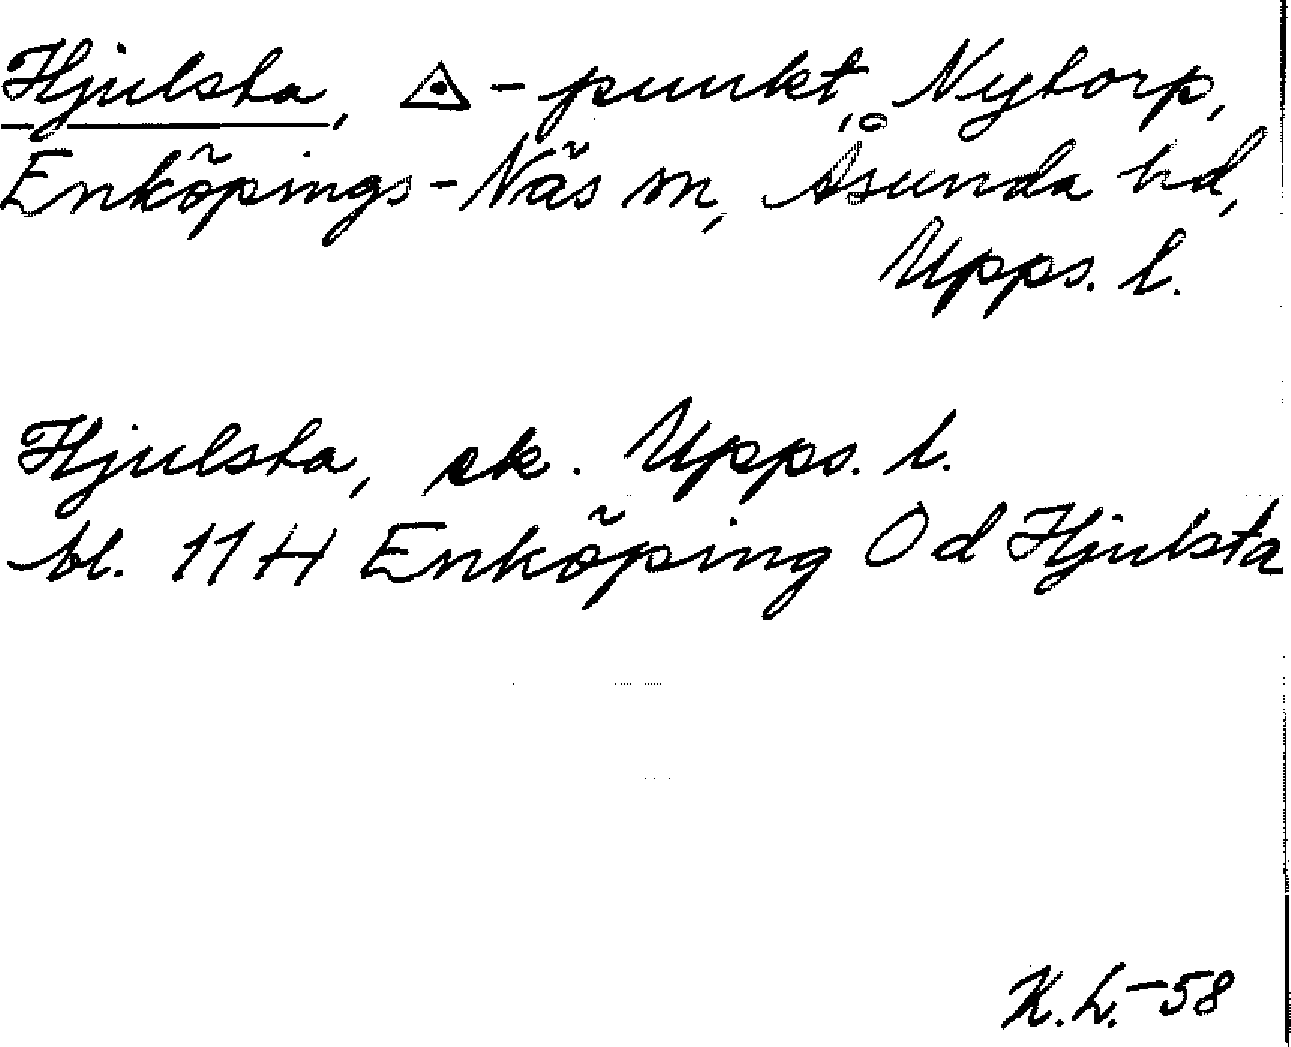 Hjulsta, △-punkt, Nytorp,
Enköpings-Näs sn, Åsunda hd,
Upps. l.
Hjulsta, ek. Upps. l.
bl. 11 H Enköping O d Hjulsta
K.L.-58